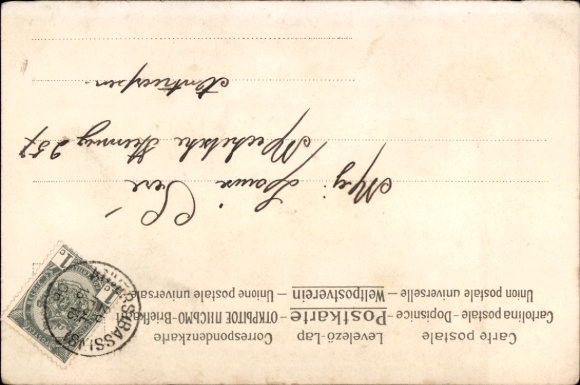 Carte postale Levelező-Lap Correspondenzkarte
Cartolina postale - Dopisnice - Postkarte - ОТКРЫТОЕ ПИСЬМО - Briefkaart
Union postale universelle - Weltpostverein - Unione postale universale
Mej. Louise
Mechelsche Steenweg 257
Antwerpen
1c